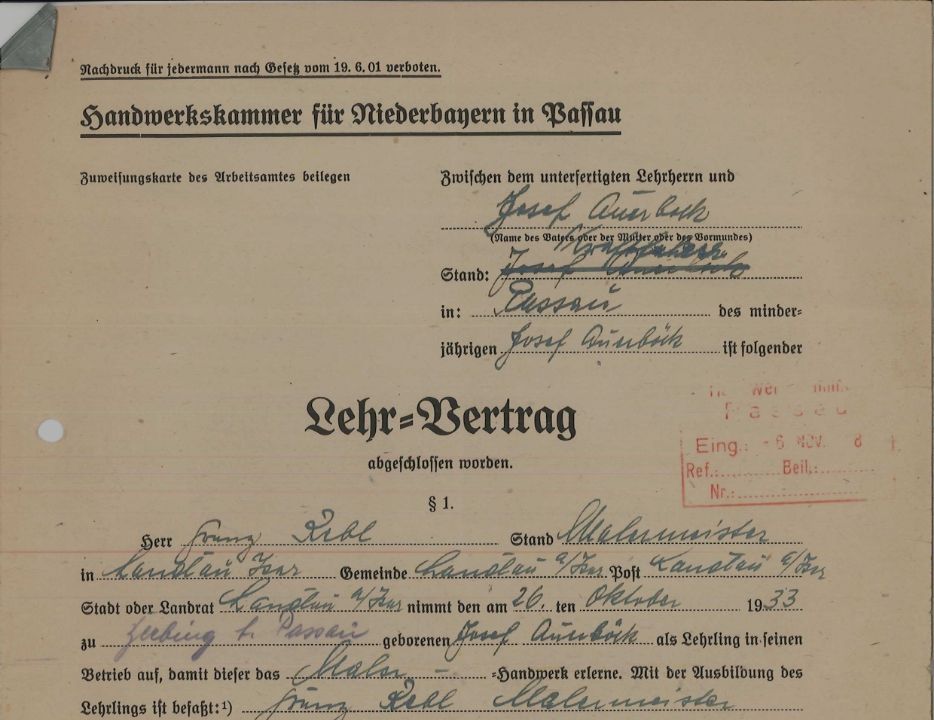 Nachdruck für jedermann nach Gesetz vom 19. 6. 01 verboten.
Handwerkskammer für Niederbayern in Passau
Zuweisungskarte des Arbeitsamtes beilegen
Zwischen dem unterfertigten Lehrherrn und
Josef Auerböck
(Name des Vaters oder der Mutter oder des Vormundes)
Stand: Josef Auerböck
in: Passau des minder-
jährigen Josef Auerböck ist folgender
Lehr-Vertrag
abgeschlossen worden.
Passau
Eing.: -6. NOV. 8
Ref.: Beil.:
Nr.:
§ 1.
Herr Franz Stand Malermeister
in Landau Isar Gemeinde Landau a/Isar Post Landau a/Isar
Stadt oder Landrat Landau a/Isar nimmt den am 26. ten Oktober 1933
zu b. Passau geborenen Josef Auerböck als Lehrling in seinen
Betrieb auf, damit dieser das Maler - -Handwerk erlerne. Mit der Ausbildung des
Lehrlings ist befaßt:¹) Franz Malermeister